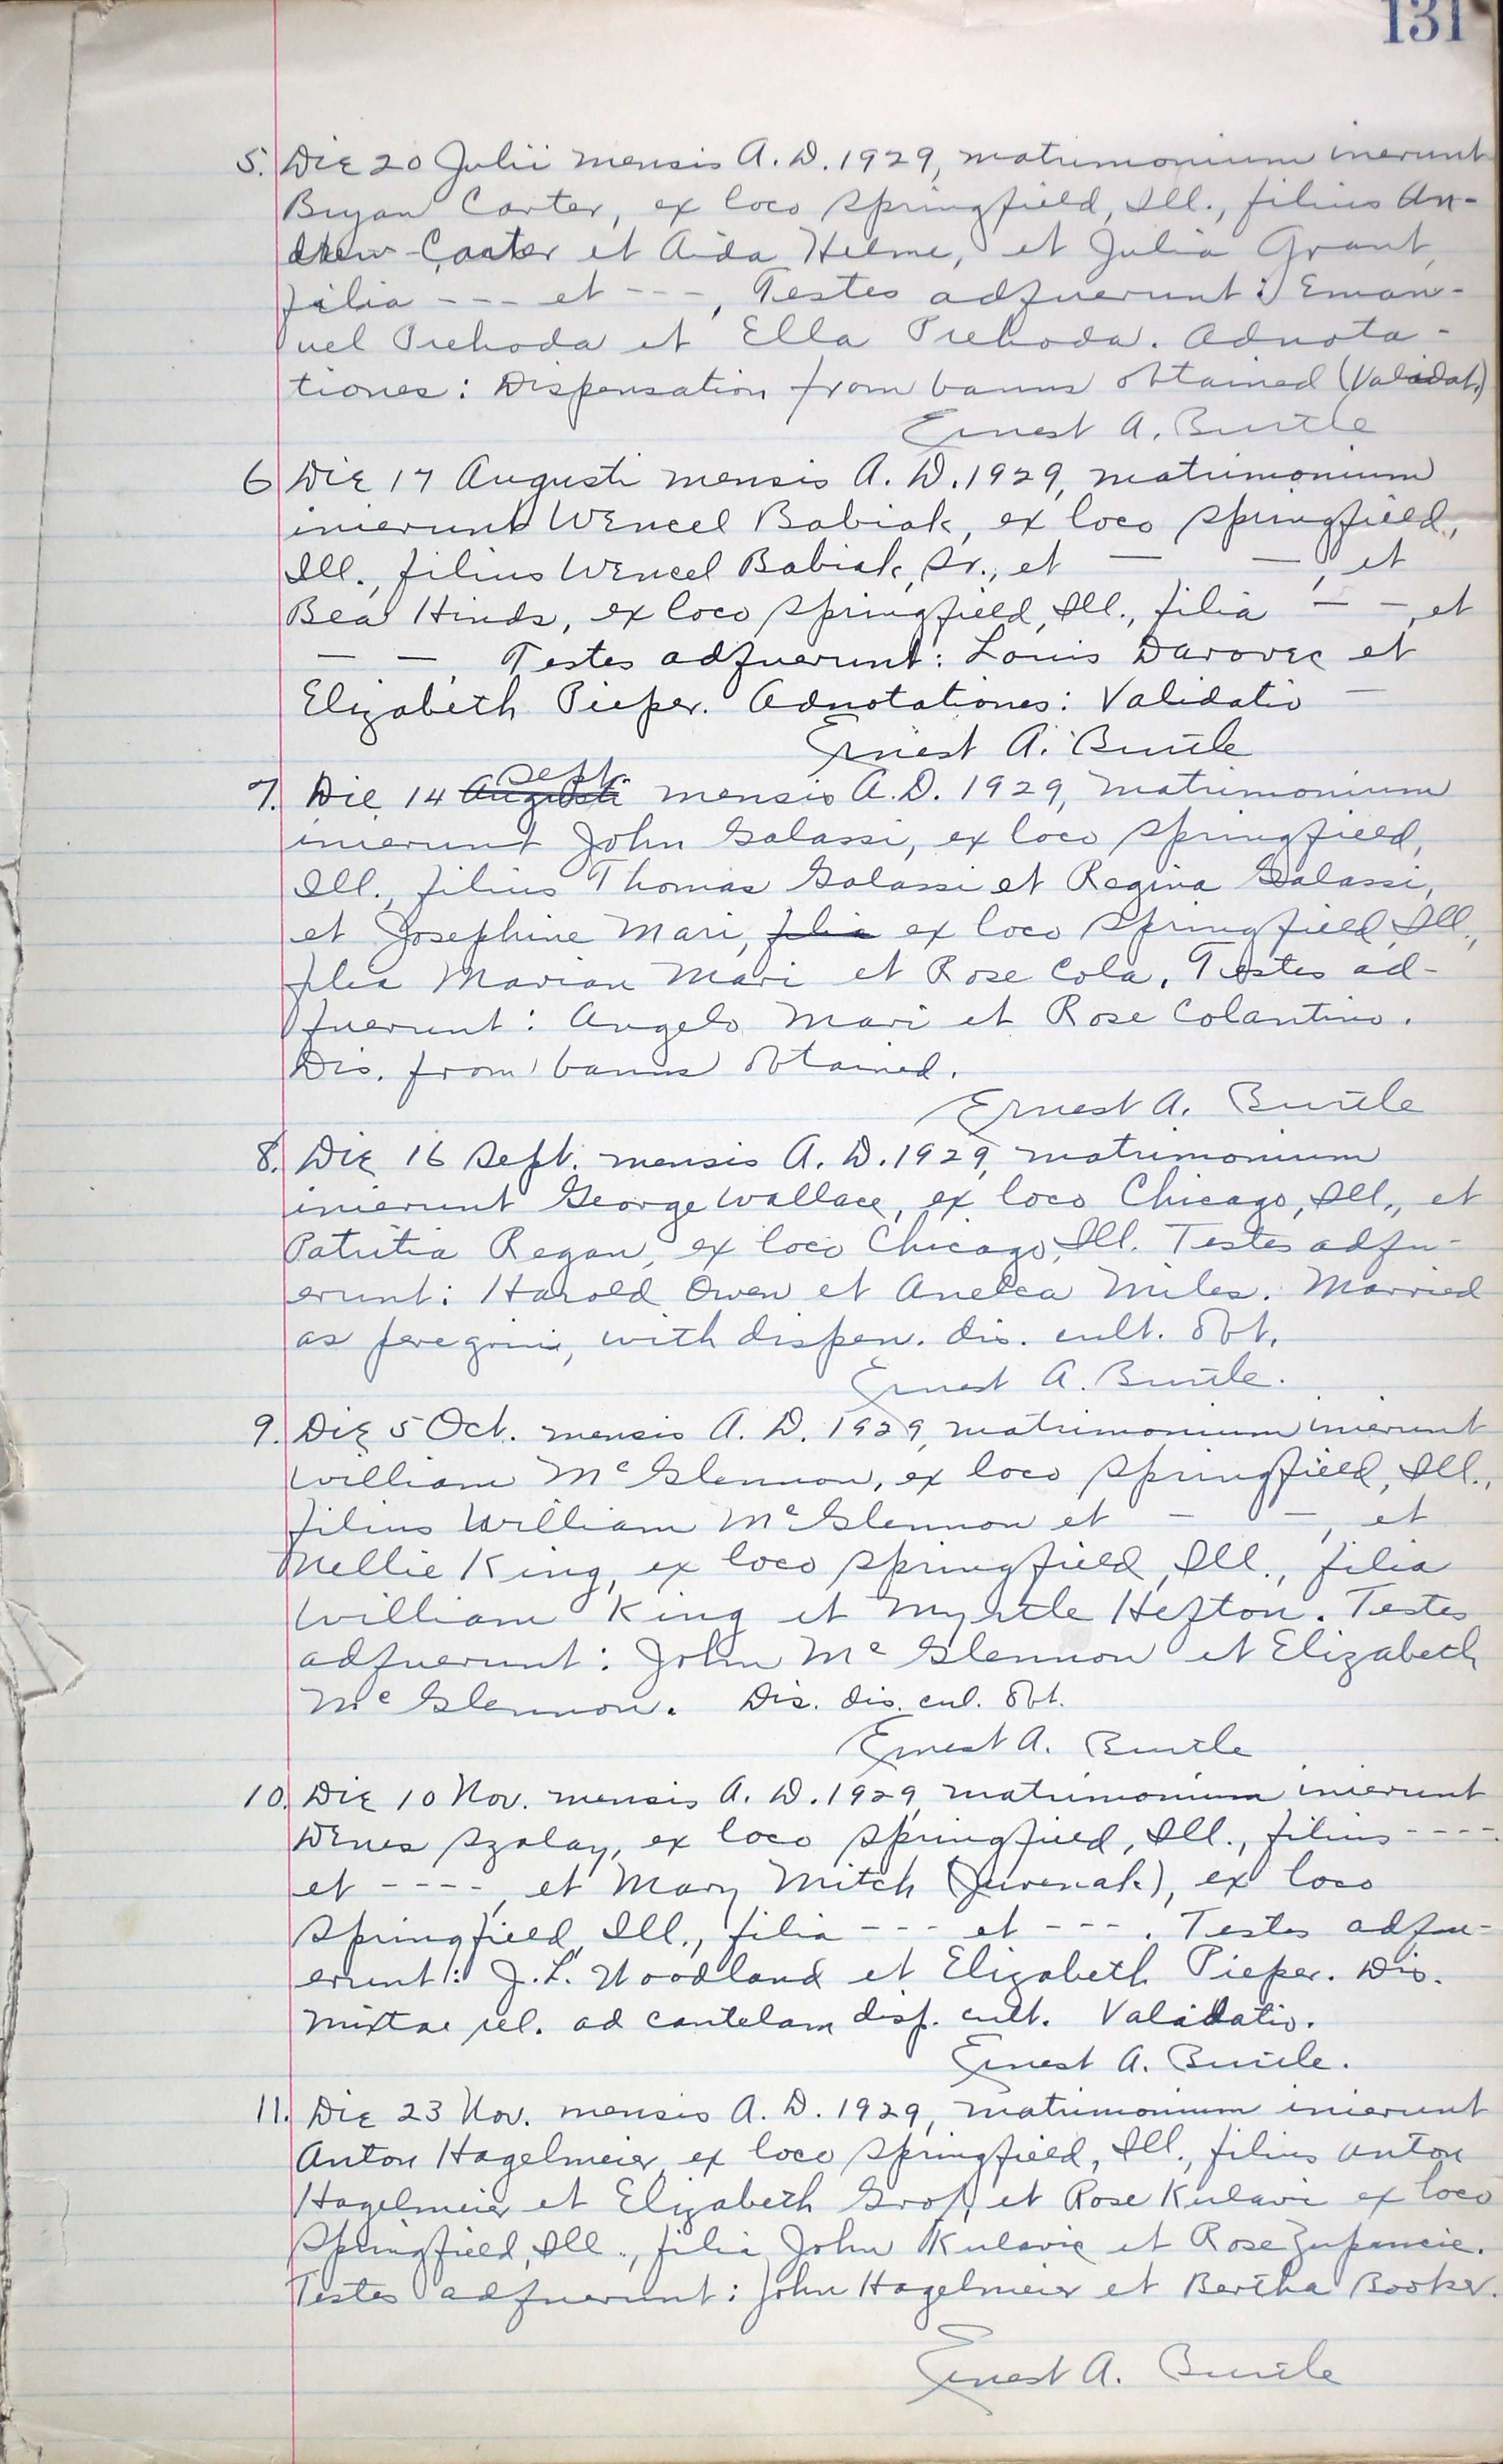 131
5. Die 20 Julii mensis A.D. 1929, matrimonium inerunt
Bryan Carter, ex loco Springfield, Ill., filius An-
drew Carter et Aida Helme, et Julia Grant,
filia --- et ---, Testes adfuerunt: Eman-
uel Prehoda et Ella Prehoda. Adnota-
tiones: Dispensation from banns obtained (Validat.)
Ernest A. Burtle
6 Die 17 Augusti mensis A.D. 1929, matrimonium
inierunt Wencel Babiak, ex loco Springfield,
Ill., filius Wencel Babiak, Sr., et — —, et
Bea Hinds, ex loco Springfield, Ill., filia — —, et
— —. Testes adfuerunt: Louis Darovec et
Elizabeth Pieper. Adnotationes: Validatio —
Ernest A. Burtle
Sept.
7. Die 14 Augusti mensis A.D. 1929, matrimonium
inierunt John Galassi, ex loco Springfield,
Ill., filius Thomas Galassi et Regina Galassi,
et Josephine Mari, filia ex loco Springfield, Ill.,
filia Marian Mari et Rose Cola. Testes ad-
fuerunt: Angelo Mari et Rose Colantino.
Dis. from banns obtained.
Ernest A. Burtle
8. Die 16 Sept. mensis A.D. 1929, matrimonium
inierunt George Wallace, ex loco Chicago, Ill., et
Patritia Regan, ex loco Chicago, Ill. Testes adfu-
erunt: Harold Owen et Anelea Miles. Married
as peregrini, with dispen. dis. cult. obt.
Ernest A. Burtle.
9. Die 5 Oct. mensis A.D. 1929, matrimonium inierunt
William McGlennon, ex loco Springfield, Ill.,
filius William McGlennon et — —, et
Nellie King, ex loco Springfield, Ill., filia
William King et Myrtle Hefton. Testes
adfuerunt: John McGlennon et Elizabeth
McGlennon. Dis. dis. cul. obt.
Ernest A. Burtle
10. Die 10 Nov. mensis A.D. 1929, matrimonium inierunt
Denes Szalay, ex loco Springfield, Ill., filius ----
et ----, et Mary Mitch (Juvenak), ex loco
Springfield, Ill., filia --- et ---. Testes adfu-
erunt: J.L. Woodland et Elizabeth Pieper. Dis.
mixtae rel. ad cautelam disp. cult. Validatio.
Ernest A. Burtle.
11. Die 23 Nov. mensis A.D. 1929, matrimonium inierunt
Anton Hagelmeier, ex loco Springfield, Ill., filius Anton
Hagelmeier et Elizabeth Grof, et Rose Kulavic ex loco
Springfield, Ill., filia John Kulavic et Rose Zupancic.
Testes adfuerunt: John Hagelmeier et Bertha Booker.
Ernest A. Burtle